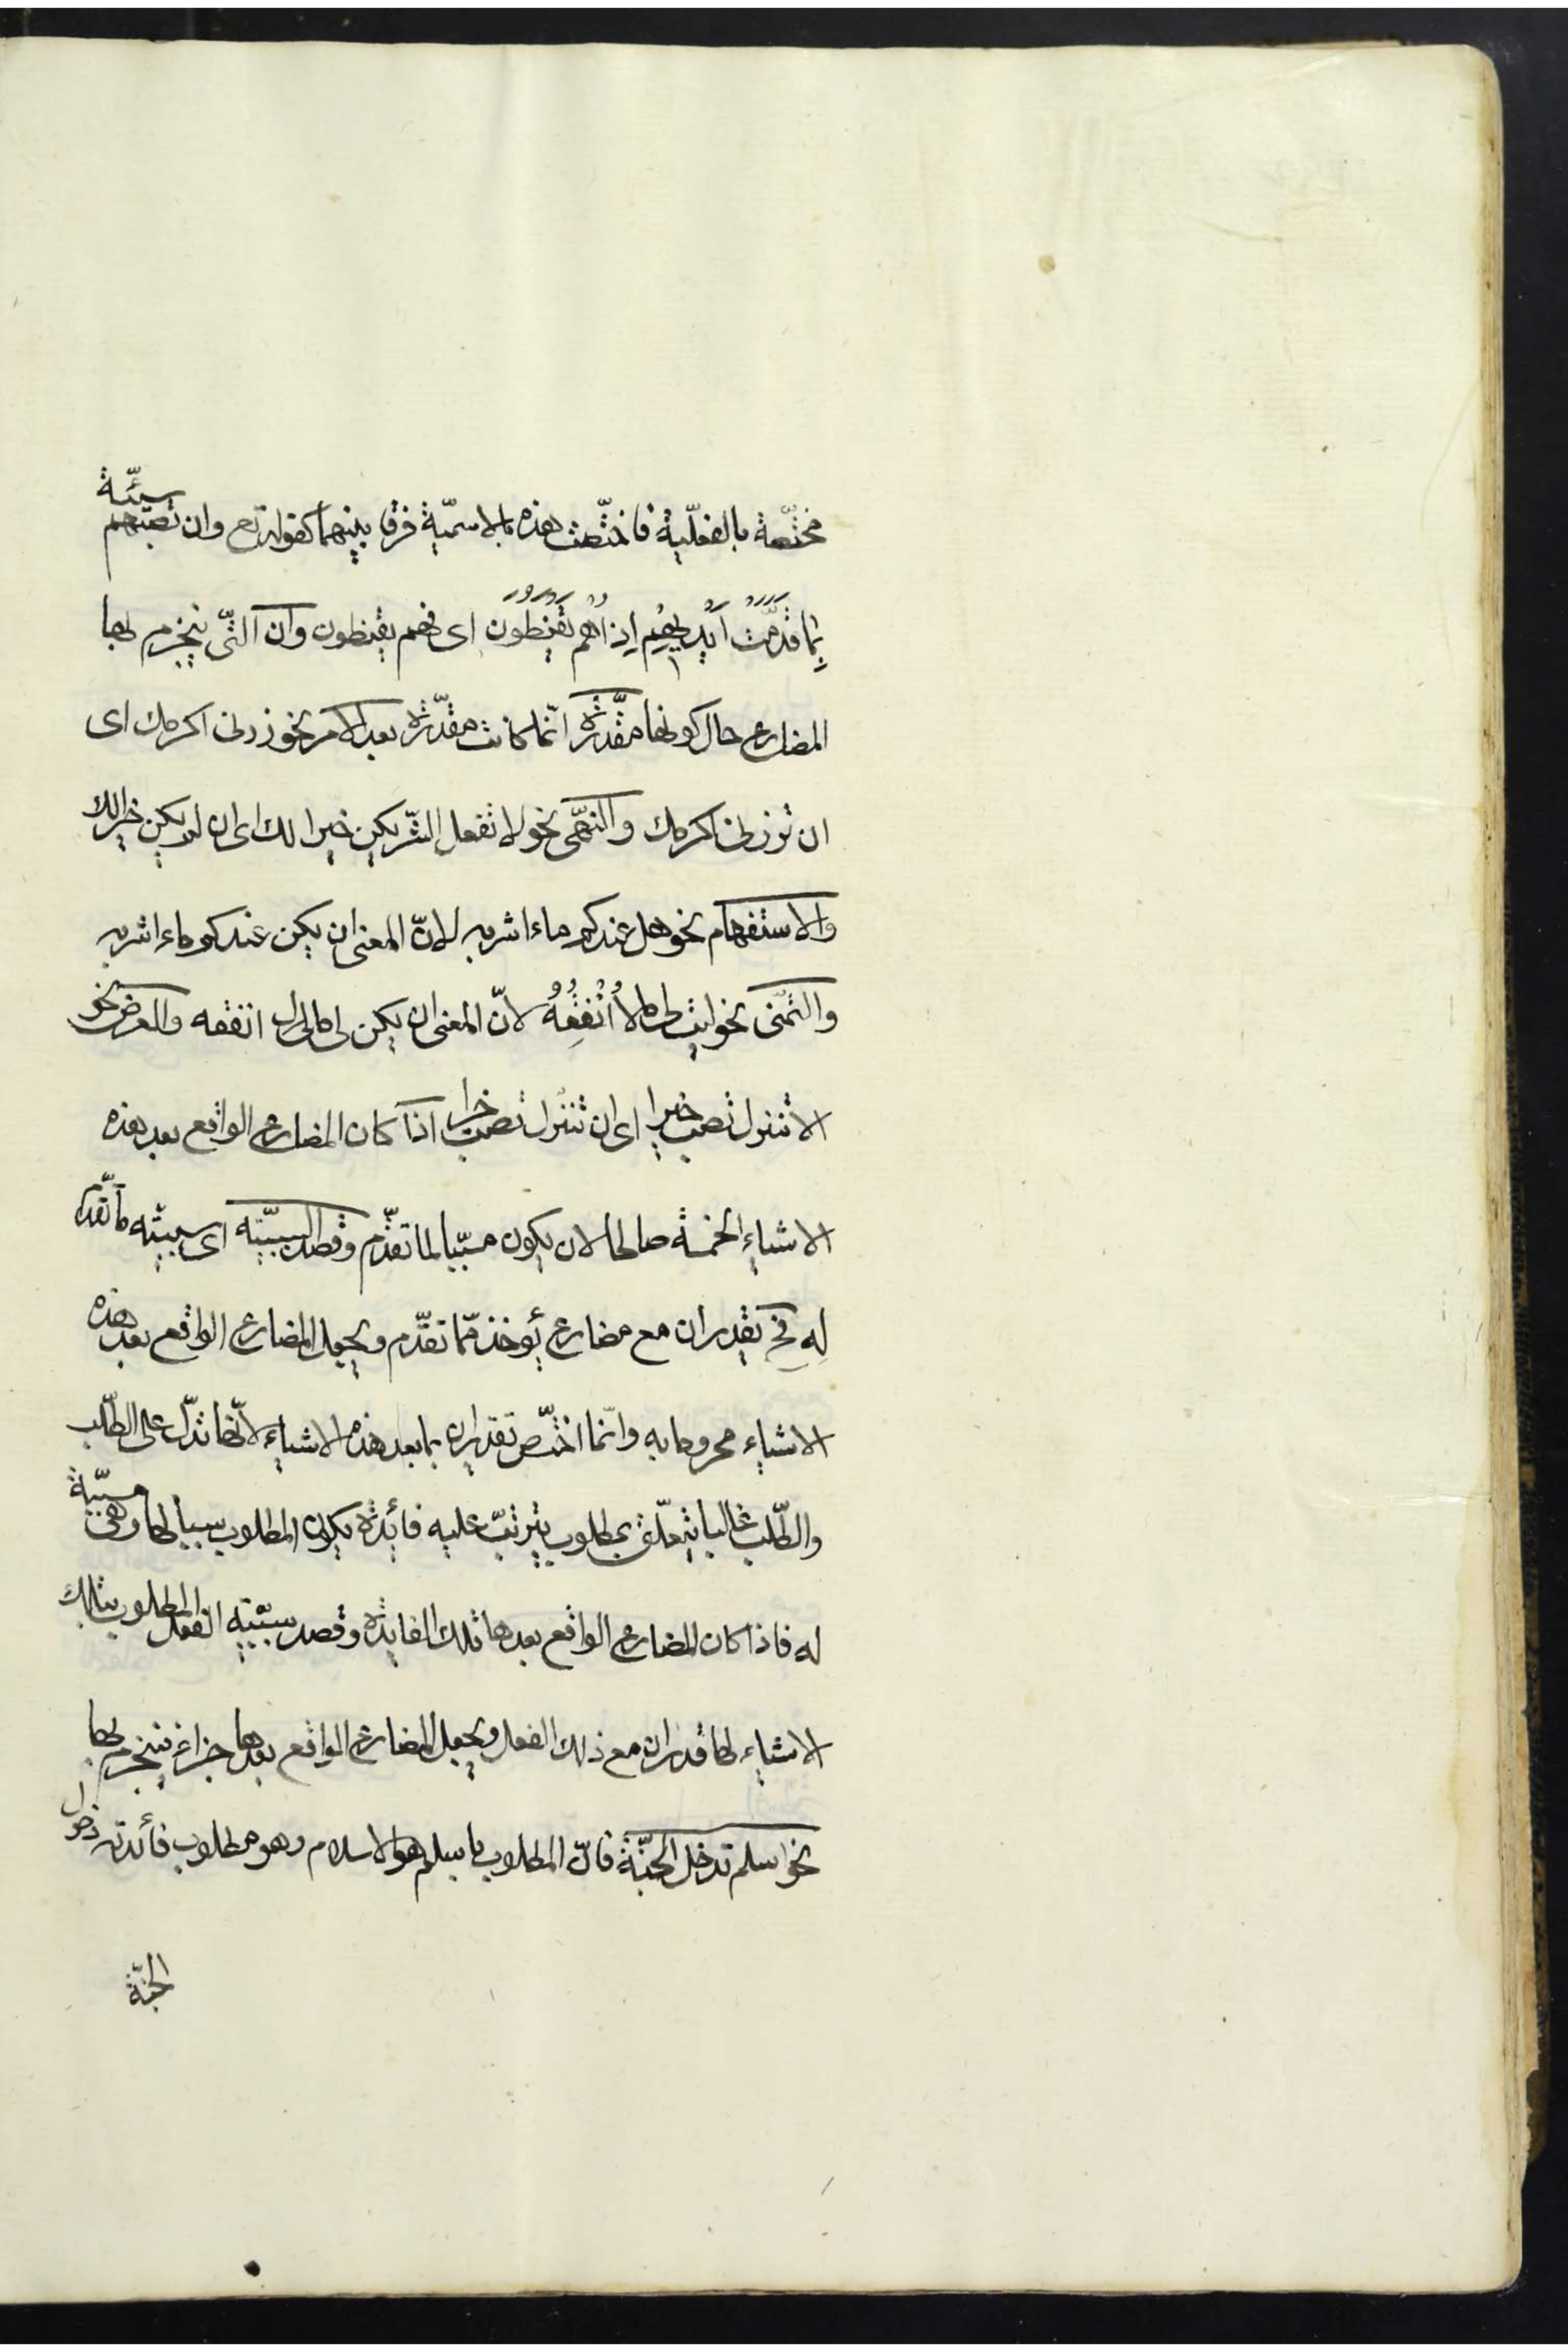 مختصّة بالفعليّة فاختصّت هذه بالاسميّة فرقا بينهما كقوله تع وان تصبهم سيّئة
بِمَا قَدَّمَتْ اَيْدِيهِمْ اِذَا هُمْ يَقْنَطُونَ اى فهم يقنطون وان الّتى ينجزم بها
المضارع حال كونها مقدّرة انّما كانت مقدّرة بعد الامر نحو زرنى اكرمك اى
ان تزرنى اكرمك والنّهى نحو لا تفعل الشّر يكن خيرا لك اى ان لم يكن خيرا لك
والاستفهام نحو هل عندكم ماء اشربه لانّ المعنى ان يكن عندكم ماء اشربه
والتّمنى نحو ليت لى مالا اُنْفِقْهُ لانّ المعنى ان يكن لى مال انفقه والعرض نحو
الا تنزل تصب خيرا اى ان تنزل تصب خيرا اذا كان المضارع الواقع بعد هذه
الاشياء الخمسة صالحا لان يكون مسبّبا لما تقدّم وقصد السببيّة اى سببيّته ما تقدّم
له فح يقدر ان مع مضارع يؤخذ ممّا تقدّم ويجعل المضارع الواقع بعد هذه
الاشياء مجزوما به وانّما اختصّ تقدير ان بما بعد هذه الاشياء لانّها تدلّ على الطّلب
والطّلب غالبا يتعلّق بمطلوب يترتّب عليه فائدة يكون المطلوب سببا لها وهى مسبّبة
له فاذا كان المضارع الواقع بعدها تلك الفايدة وقصد سببيّة الفعل المطلوب بتلك
الاشياء لها قدر ان مع ذلك الفعل ويجعل المضارع الواقع بعدها جزاء فينجزم بها
نحو اسلم تدخل الجنّة فانّ المطلوب باسلم هو الاسلام وهو مطلوب فائدته دخول
الجنّة